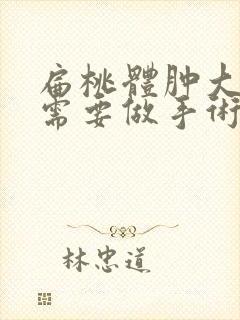 扁桃體肿大
需要做手術
林忠道